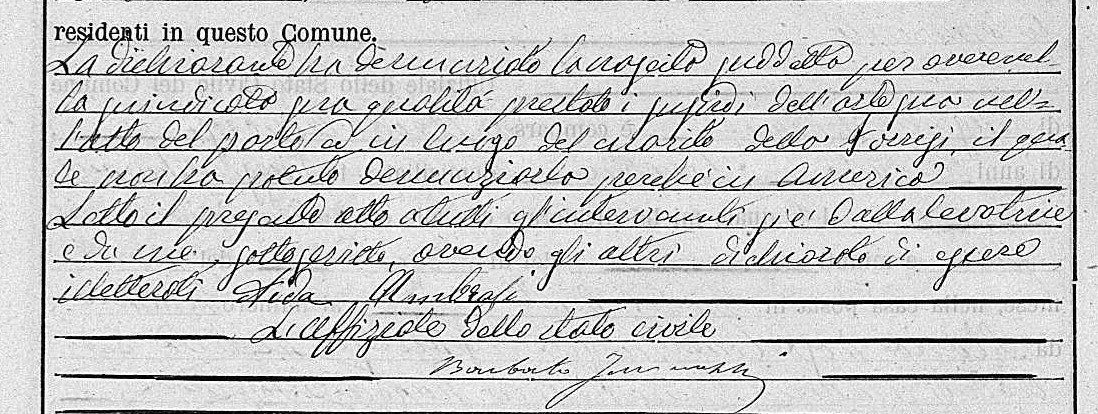 residenti in questo Comune.
La dichiarante ha denunziato la nascita suddetta per avere nel-
la suindicata sua qualità prestato i sussidi dell'arte sua nell'
atto del parto ed in luogo del marito della il qua-
le non ha potuto denunziarla perché in America
Letto il presente atto a tutti gl'intervenuti si è dalla levatrice
e da me sottoscritto, avendo gli altri dichiarato di essere
illetterati Aida
L'uffiziale dello stato civile